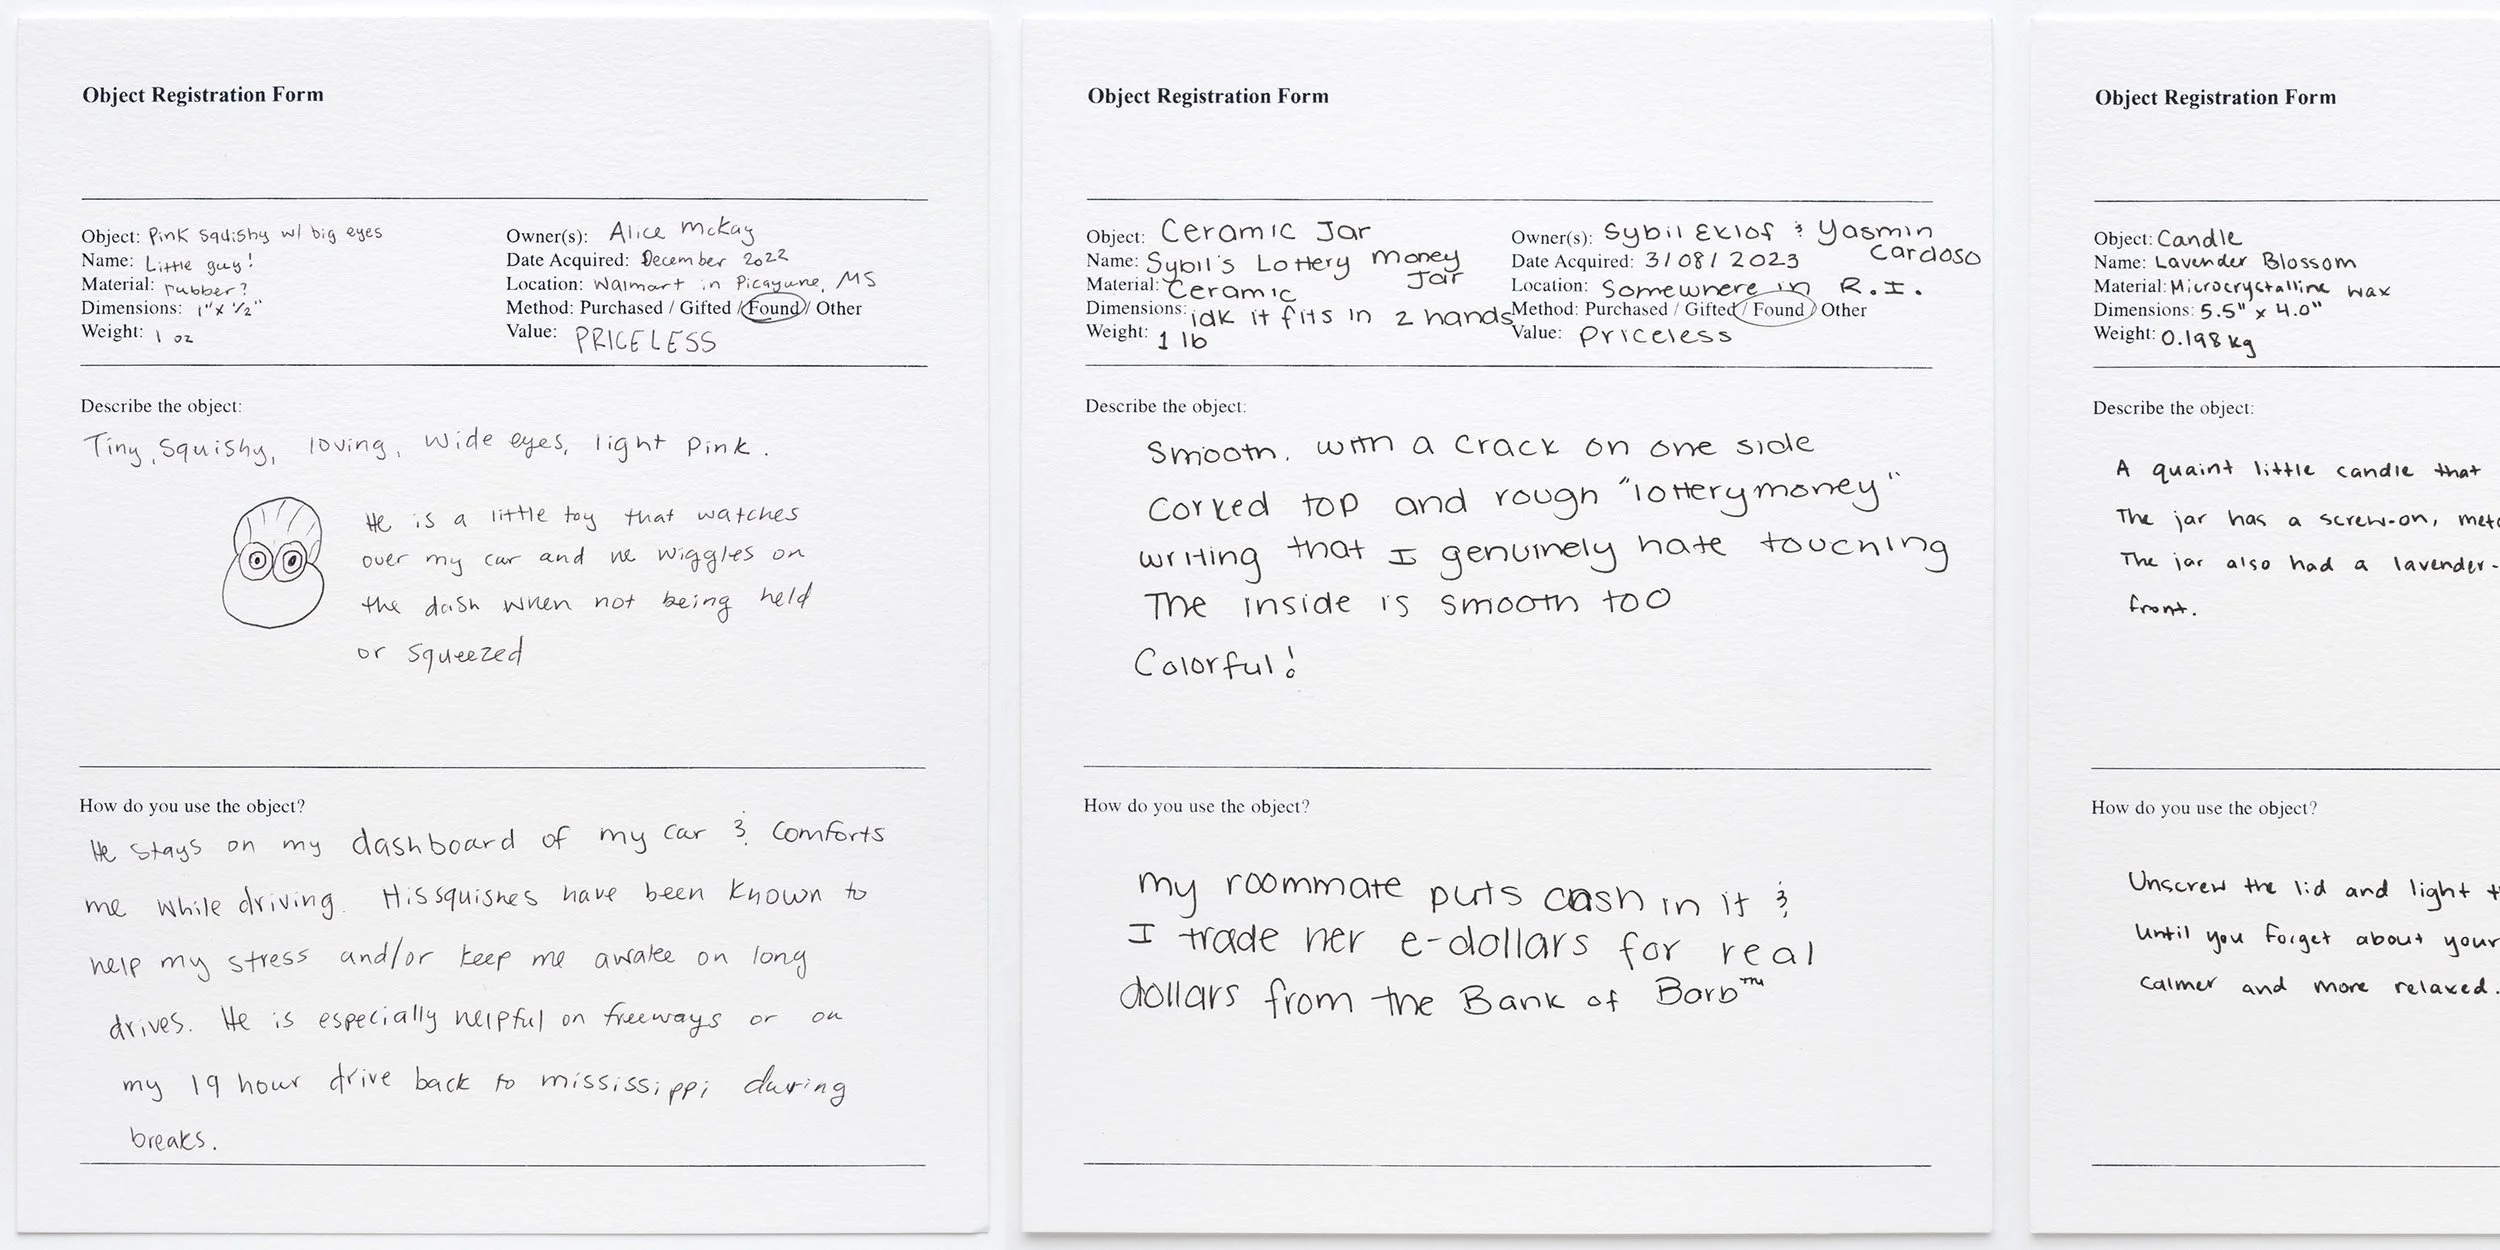 Object Registration Form
Object: Pink squishy w/ big eyes
Name: Little guy!
Material: rubber?
Dimensions: 1" x 1/2"
Weight: 1 oz
Owner(s): Alice McKay
Date Acquired: December 2022
Location: Walmart in Picayune, MS
Method: Purchased / Gifted / Found / Other
Value: PRICELESS
Describe the object:
Tiny, squishy, loving, wide eyes, light pink.
He is a little toy that watches
over my car and he wiggles on
the dash when not being held
or squeezed
How do you use the object?
He stays on my dashboard of my car & comforts
me while driving. His squishes have been known to
help my stress and/or keep me awake on long
drives. He is especially helpful on freeways or on
my 19 hour drive back to mississippi during
breaks.
Object Registration Form
Object: Ceramic Jar
Name: Sybil's Lottery Money
Jar
Material: Ceramic
Dimensions: idk it fits in 2 hands
Weight: 1 lb
Owner(s): Sybil Eklof & Yasmin
Cardoso
Date Acquired: 3/08/2023
Location: Somewhere in R.I.
Method: Purchased / Gifted / Found / Other
Value: Priceless
Describe the object:
Smooth, with a crack on one side
Corked top and rough "lottery money"
writing that I genuinely hate touching
The inside is smooth too
Colorful!
How do you use the object?
my roommate puts cash in it &
I trade her e-dollars for real
dollars from the Bank of Barb™
Object Registration Form
Object: Candle
Name: Lavender Blossom
Material: Microcrystalline wax
Dimensions: 5.5" x 4.0"
Weight: 0.198 kg
Describe the object:
A quaint little candle that
The jar has a screw-on,
The jar also had a lavender-
front.
How do you use the object?
Unscrew the lid and light
Until you forget about your
calmer and more relaxed.